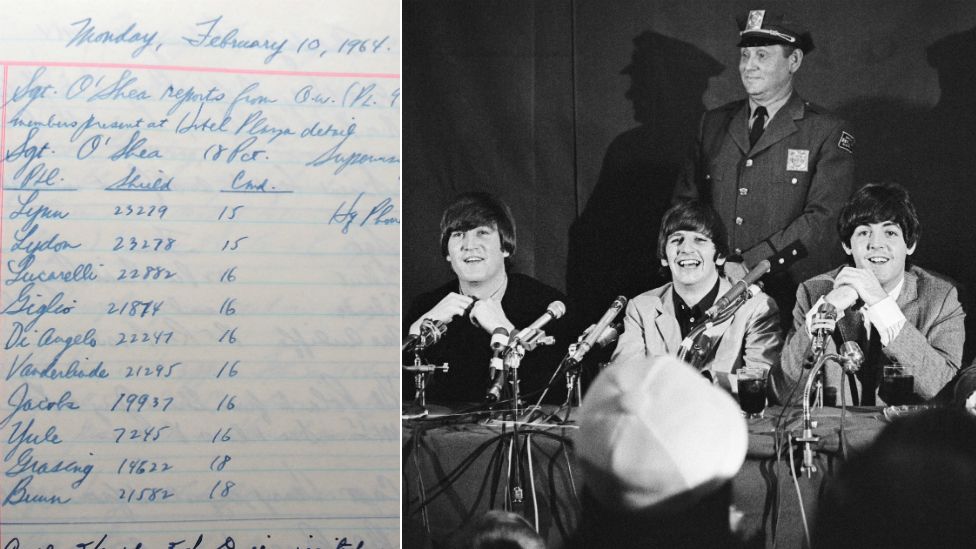 Monday, February 10, 1964.
Sgt. O'Shea reports from O.W. (PL.
members present at Hotel Plaza detail
Sgt. O'Shea 18 Pct.
Ptl. Shield Cmd.
Lynn 23279 15 Hq
Lydon 23278 15
Lucarelli 22882 16
Giglio 21874 16
Di Angelo 22247 16
Vanderlinde 21295 16
Jacobs 19937 16
Yule 7245 16
Grasing 14622 18
Bunn 21582 18